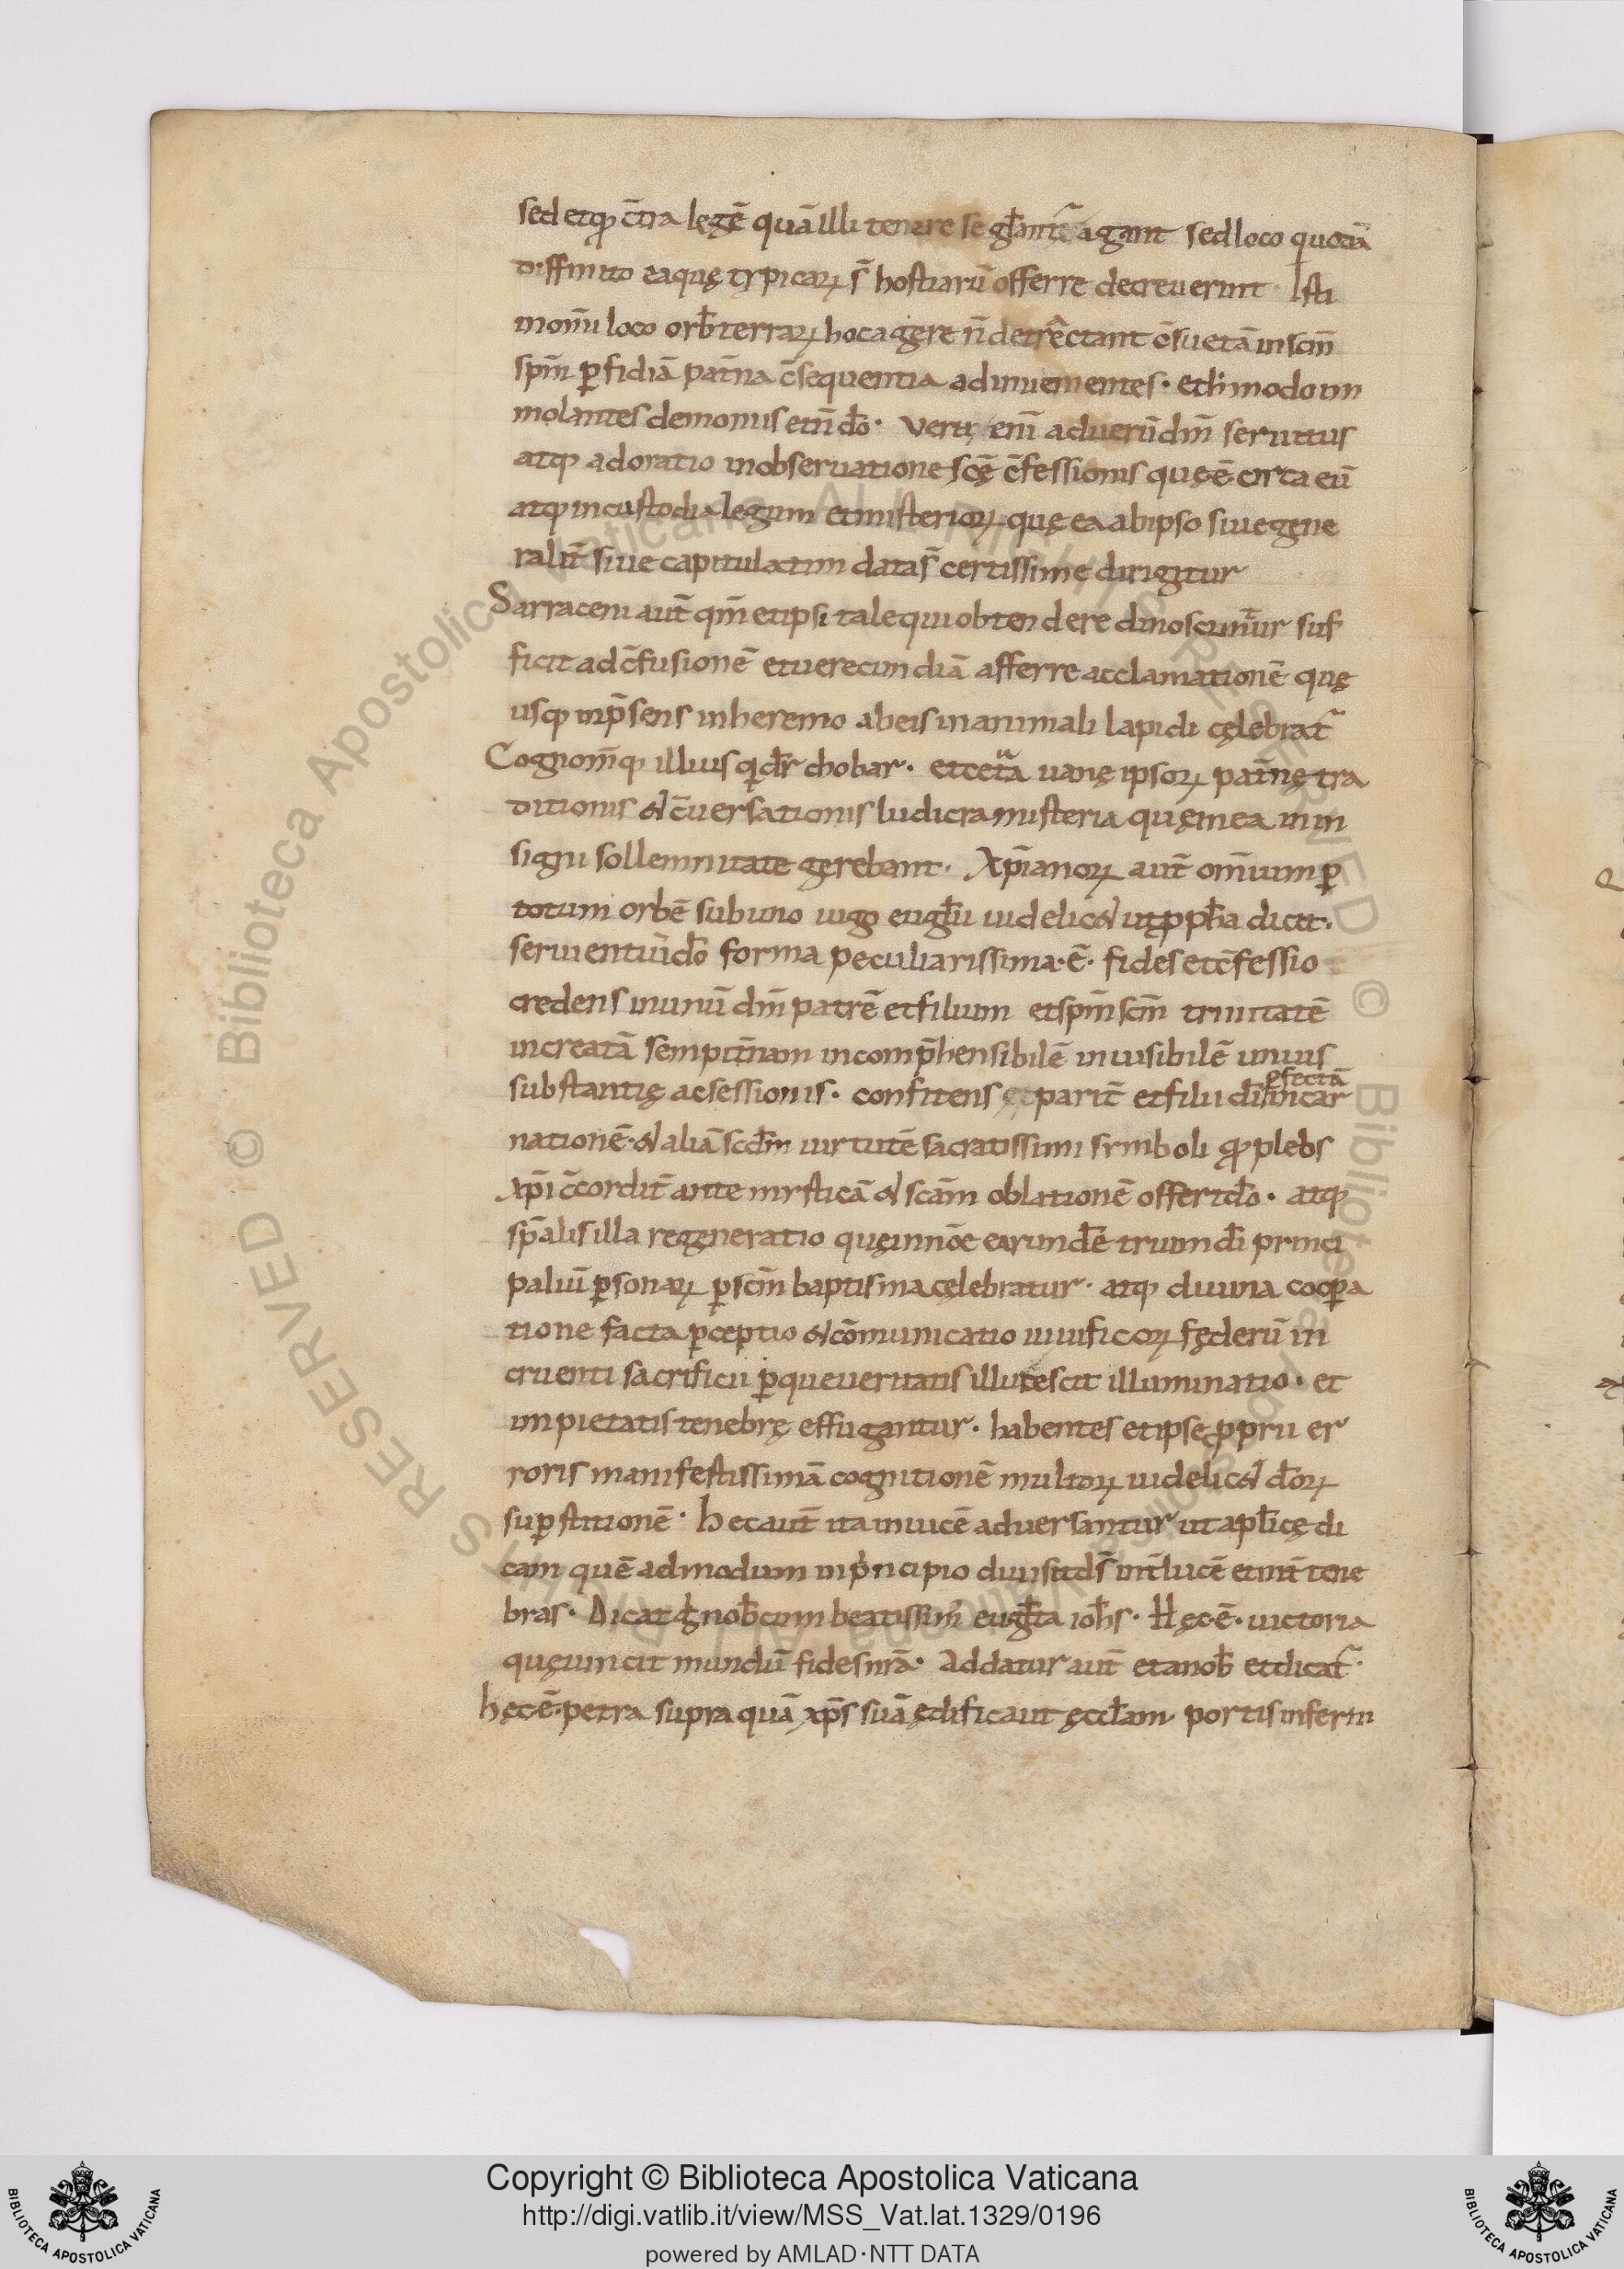 sed etqđ c̄tra legē quā illi tenere se gl̄antr̄ agant sed loco quodā
diffinito eaquę typicaꝝ s̄ hostiarū offerre decreuerint Isti
inom̄i loco orb̄ terraꝝ hoc agere n̄ detrectant c̄suetā in sc̄m
sp̄m ꝑfidiā pat̄na c̄sequentia adinuenientes · et h̓ modo im
molantes demoniis et n̄ dō · Verus eni ad uerū dm̄ seruitus
atqꝫ adoratio in obseruatione sc̄ę c̄fessionis quę ē circa eū
atqꝫ in custodia legum et misterioꝝ quę ea ab ipso siue gene
ralit̄ siue capitulatim data s̄ certissime dirigitur
Sarraceni aut̄ qm̄ et ipsi tale qui obtendere dinoscunt̄ur suf
ficit ad c̄fusionē et uerecundiā afferre acclamationē quę
usqꝫ inp̄sens in heremo ab eis inanimali lapidi cęlebrat̄
Cognom̄qꝫ illius qđ dr̄ chobar · et cet̄a uanę ipsoꝝ pat̄nę tra
ditionis & c̄uersationis ludicra misteria quę in ea in in
signi sollemnitate gerebant · Xp̄ianoꝝ aut̄ om̄ium ꝑ
totum orbē sub uno iugo eugl̄ii uidelic& ut ꝓph̄a dicit ·
seruientiū dō forma peculiarissima · ē · fides et c̄fessio
credens in unū dm̄ patrē et filium et sp̄m sc̄m trinitatē
increatā sempit̄nam incomp̄hensibilē inuisibilē unius
substantię ac sessionis · confitens et parit̄ et filii di ꝑfectā incar
nationē · & aliā scd̄m uirtutē sacratissimi symboli qđ plebs
xp̄i c̄cordit̄ ante mysticā & scām oblationē offert dō · atqꝫ
sp̄alis illa regeneratio quę in nōe earundē trium di princi
paliū ꝑsonaꝝ ꝑ sc̄m baptisma cęlebratur · atqꝫ diuina coopa
tione facta ꝑceptio & cōmunicatio uiuificoꝝ fęderū in
cruenti sacrificii ꝑ que ueritatis illucescit illuminatio · et
impietatis tenebrę effugantur · habentes et ipse ꝓprii er
roris manifestissimā cognitionē multoꝝ uidelic& dōꝝ
suꝑstitionē · hec aut̄ ita inuicē aduersantur ut apl̄icę di
cam quē admodum in p̓ncipio diuisit ds̄ int̄ lucē et int̄ tene
bras · Dicat g̓ nob̄cum beatissim̓ eugl̄ta ioh̄s · Hęc · ē · uictoria
quę uincit mundū fides nr̄a · Addatur aut̄ et a nob̄ et dicat̄ ·
hęc · ē · petra supra quā xp̄s suā ędificauit ęccl̄am · portis inferni
Copyright © Biblioteca Apostolica Vaticana
http://digi.vatlib.it/view/MSS_Vat.lat.1329/0196
powered by AMLAD·NTT DATA